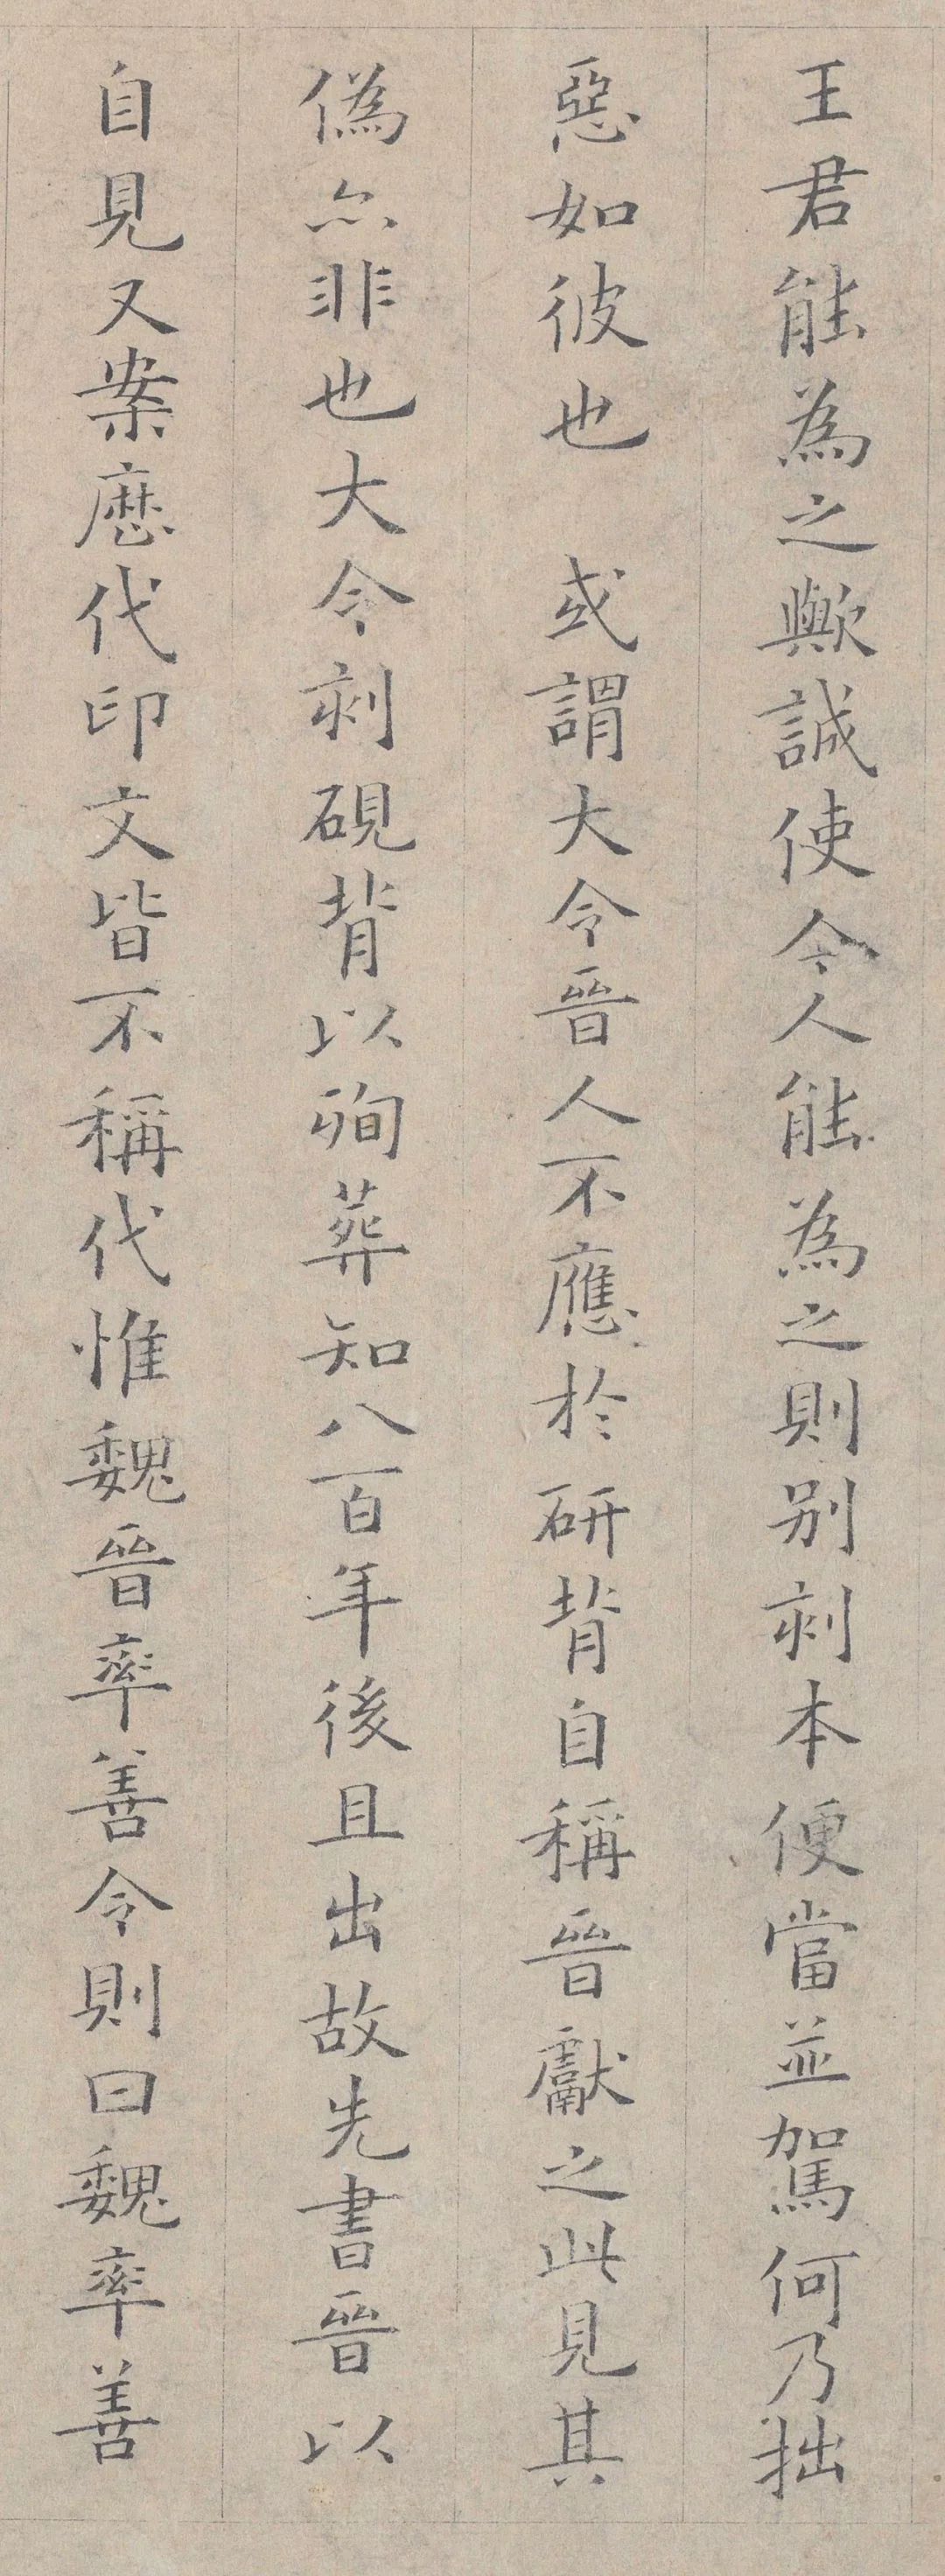 王君能為之歟誠使今人能為之則别刻本便當並駕何乃拙
惡如彼也　或謂大令晉人不應於研背自稱晉獻之此見其
偽亦非也大令刻硯背以殉葬知八百年後且出故先書晉以
自見又案歷代印文皆不稱代惟魏晉率善令則曰魏率善